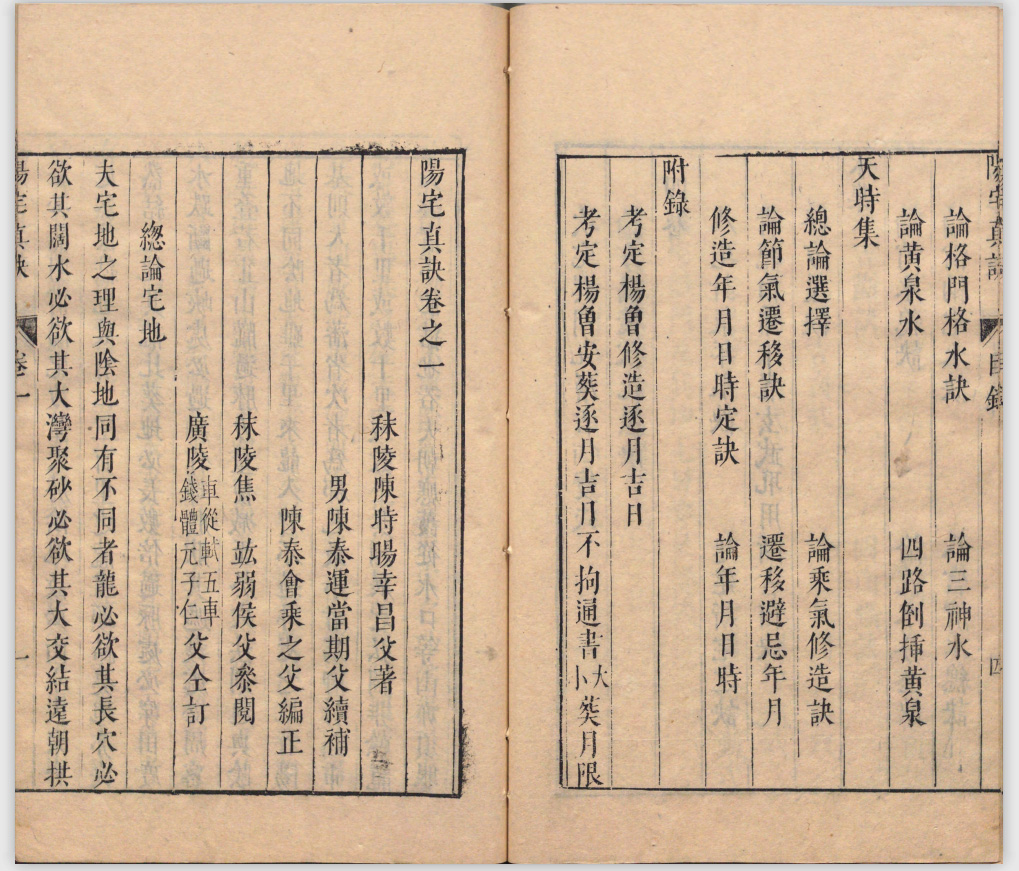 陽宅真訣 目錄 四
論格門格水訣 論三神水
論黃泉水 四路倒揷黃泉
天時集
總論選擇 論乘氣修造訣
論節氣遷移訣 遷移避忌年月
修造年月日時定訣 論年月日時
附錄
考定楊曾修造逐月吉日
考定楊曾安葬逐月吉日不拘通書大小葬月限
陽宅真訣卷之一
秣陵陳時暘幸昌父著
男陳泰運當期父續補
陳泰會乘之父編正
秣陵焦竑弱侯父叅閱
廣陵車從軾五車錢體元子仁父仝訂
緫論宅地
夫宅地之理與隂地同有不同者龍必欲其長穴必
欲其闊水必欲其大灣聚砂必欲其大交結遠朝拱
陽宅真訣 卷一 一